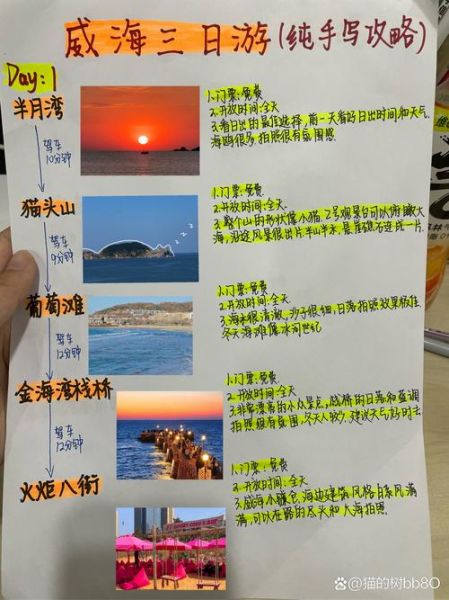 威海三日游(纯手写攻略)
Day:1
半月湾
1.门票:免费
2.开放时间:全天
3.看日出的最佳选择,前一天看好日出时间和天气.
海鸥很多,拍照很有氛围感.
驾车
10分钟
猫头山
1.门票:免费
2.开放时间:全天.
3.整个山的形状像小猫.2号观景台可以俯瞰大
海,沿途风景很出片.半山半水,悬崖礁石连成一片.
zzz
驾车
9分钟
葡萄滩
1.门票:免费
2.开放时间:全天
3.海水很清澈,沙子很细,日落拍照效果极佳.
冬天海滩像冰河世纪
驾车
12分钟
金海湾栈桥
1.门票:免费
2.开放时间:全天
3.非常漂亮的小众景点,栈桥的日落和蓝调
拍照很有氛围,冬天人较少,建议天气好时去
驾车
12分钟
火炬八街
1.门票:免费
2.开放时间:全天
3.威海小镰仓,海边建筑风格日系风满
满,可以在路的尽头和大海拍照.
@猫的树bb8O